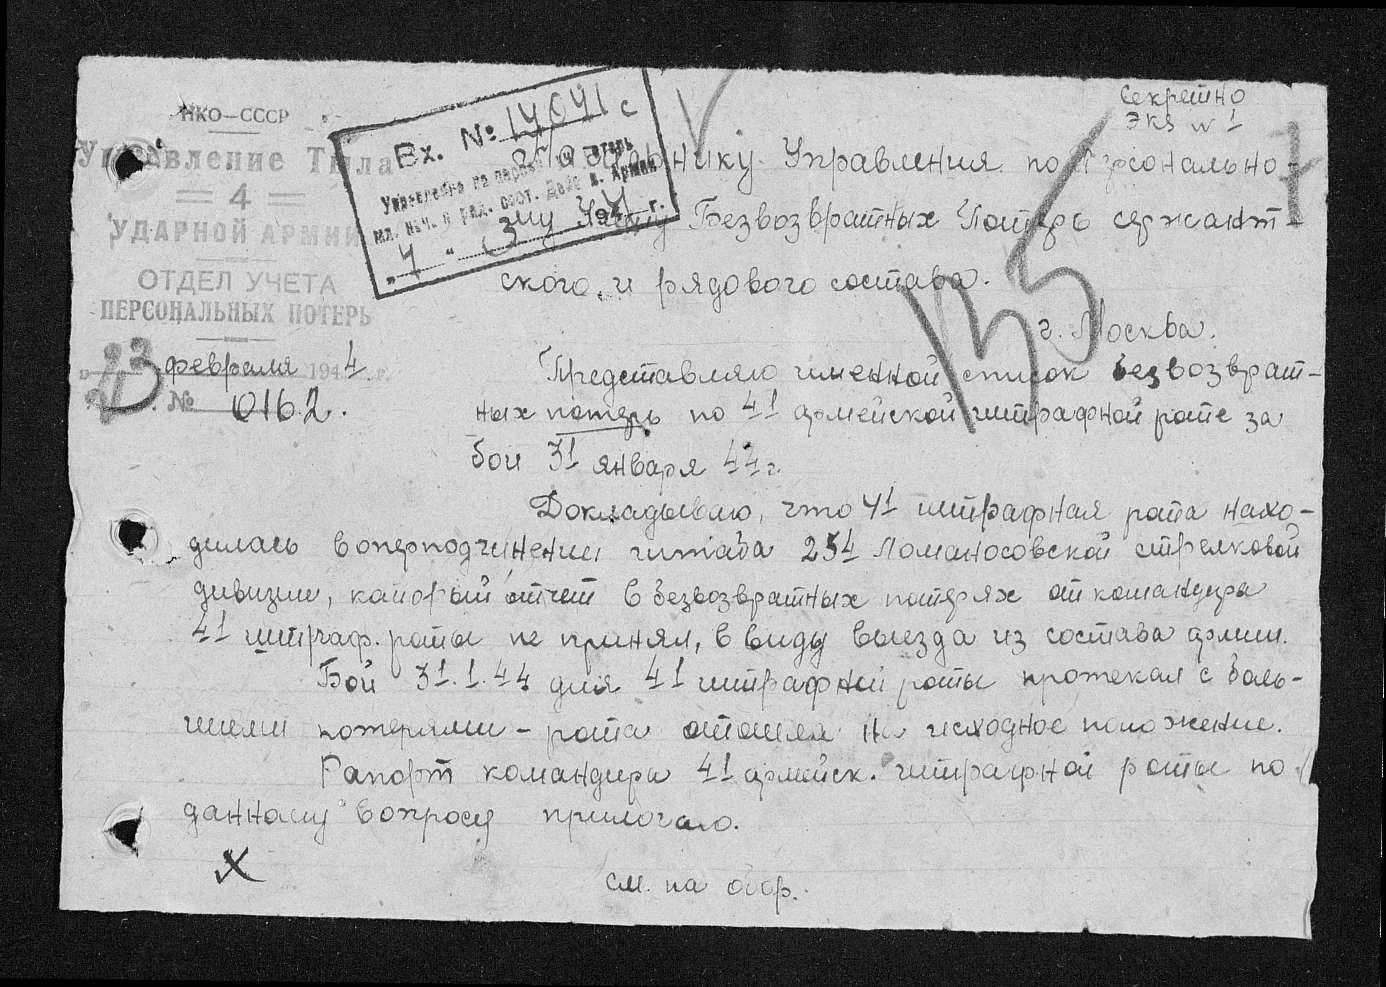 Секретно
Экз № 1
НКО-СССР
Управление Тыла
= 4 =
УДАРНОЙ АРМИИ
ОТДЕЛ УЧЕТА
ПЕРСОНАЛЬНЫХ ПОТЕРЬ
23 февраля 1944 г.
№ 0162.
Вх. № 14041 с
Управление по персон. потерь
мл. нач. и ряд. сост. Дейс. к. Армии
"4" 194 г.
Начальнику Управления по Персонально-
му Учету Безвозвратных Потерь сержант-
ского и рядового состава.
г. Москва.
Представляю именной список безвозврат-
ных потерь по 41 армейской штрафной роте за
бой 31 января 44 г.
Докладываю, что 41 штрафная рота нахо-
дилась в оперподчинении штаба 234 Ломоносовской стрелковой
дивизии, который отчет в безвозвратных потерях от командира
41 штраф. роты не принял, в виду выезда из состава армии.
Бой 31.1.44 для 41 штрафной роты протекал с боль-
шими потерями - рота отошла на исходное положение.
Рапорт командира 41 армейск. штрафной роты по
данному вопросу прилагаю.
см. на обор.